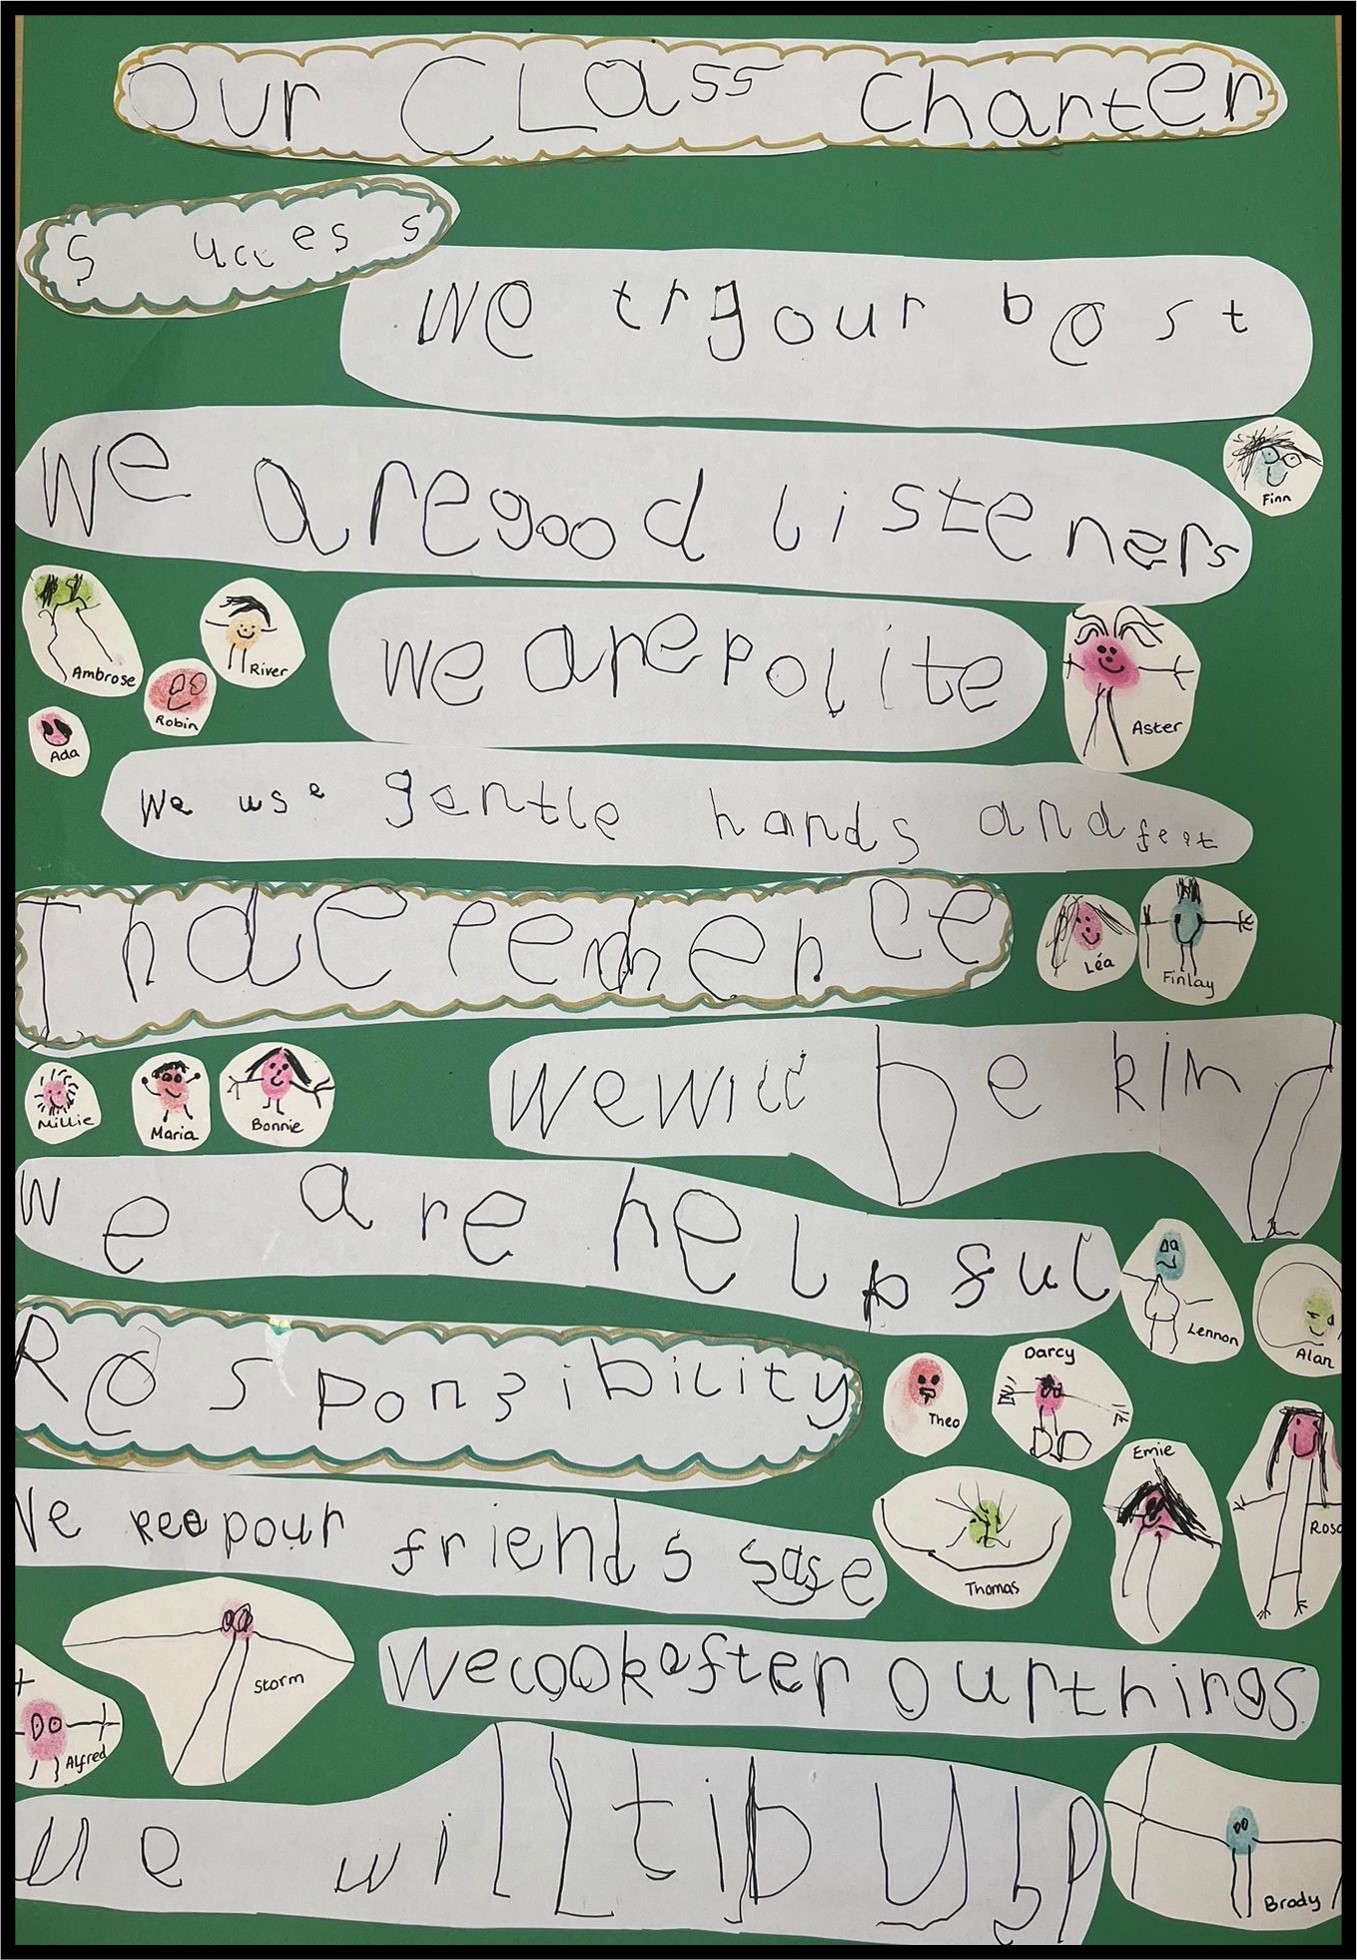 Our CLass Charter
Success
We try our best
Finn
We are good listeners
Ambrose
River
Robin
Ada
we are polite
Aster
We use gentle hands and feet
Independence
Léa
Finlay
Millie
Maria
Bonnie
We will be kind
We are helpful
Lennon
Alan
Responsibility
Theo
Darcy
Emie
Thomas
We keep our friends safe
Storm
Alfred
We look after our things
we will
Brody